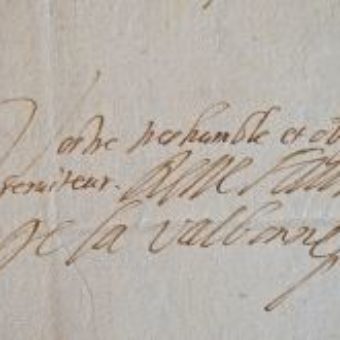 Votre tres humble et ob
serviteur.
de la valbonne